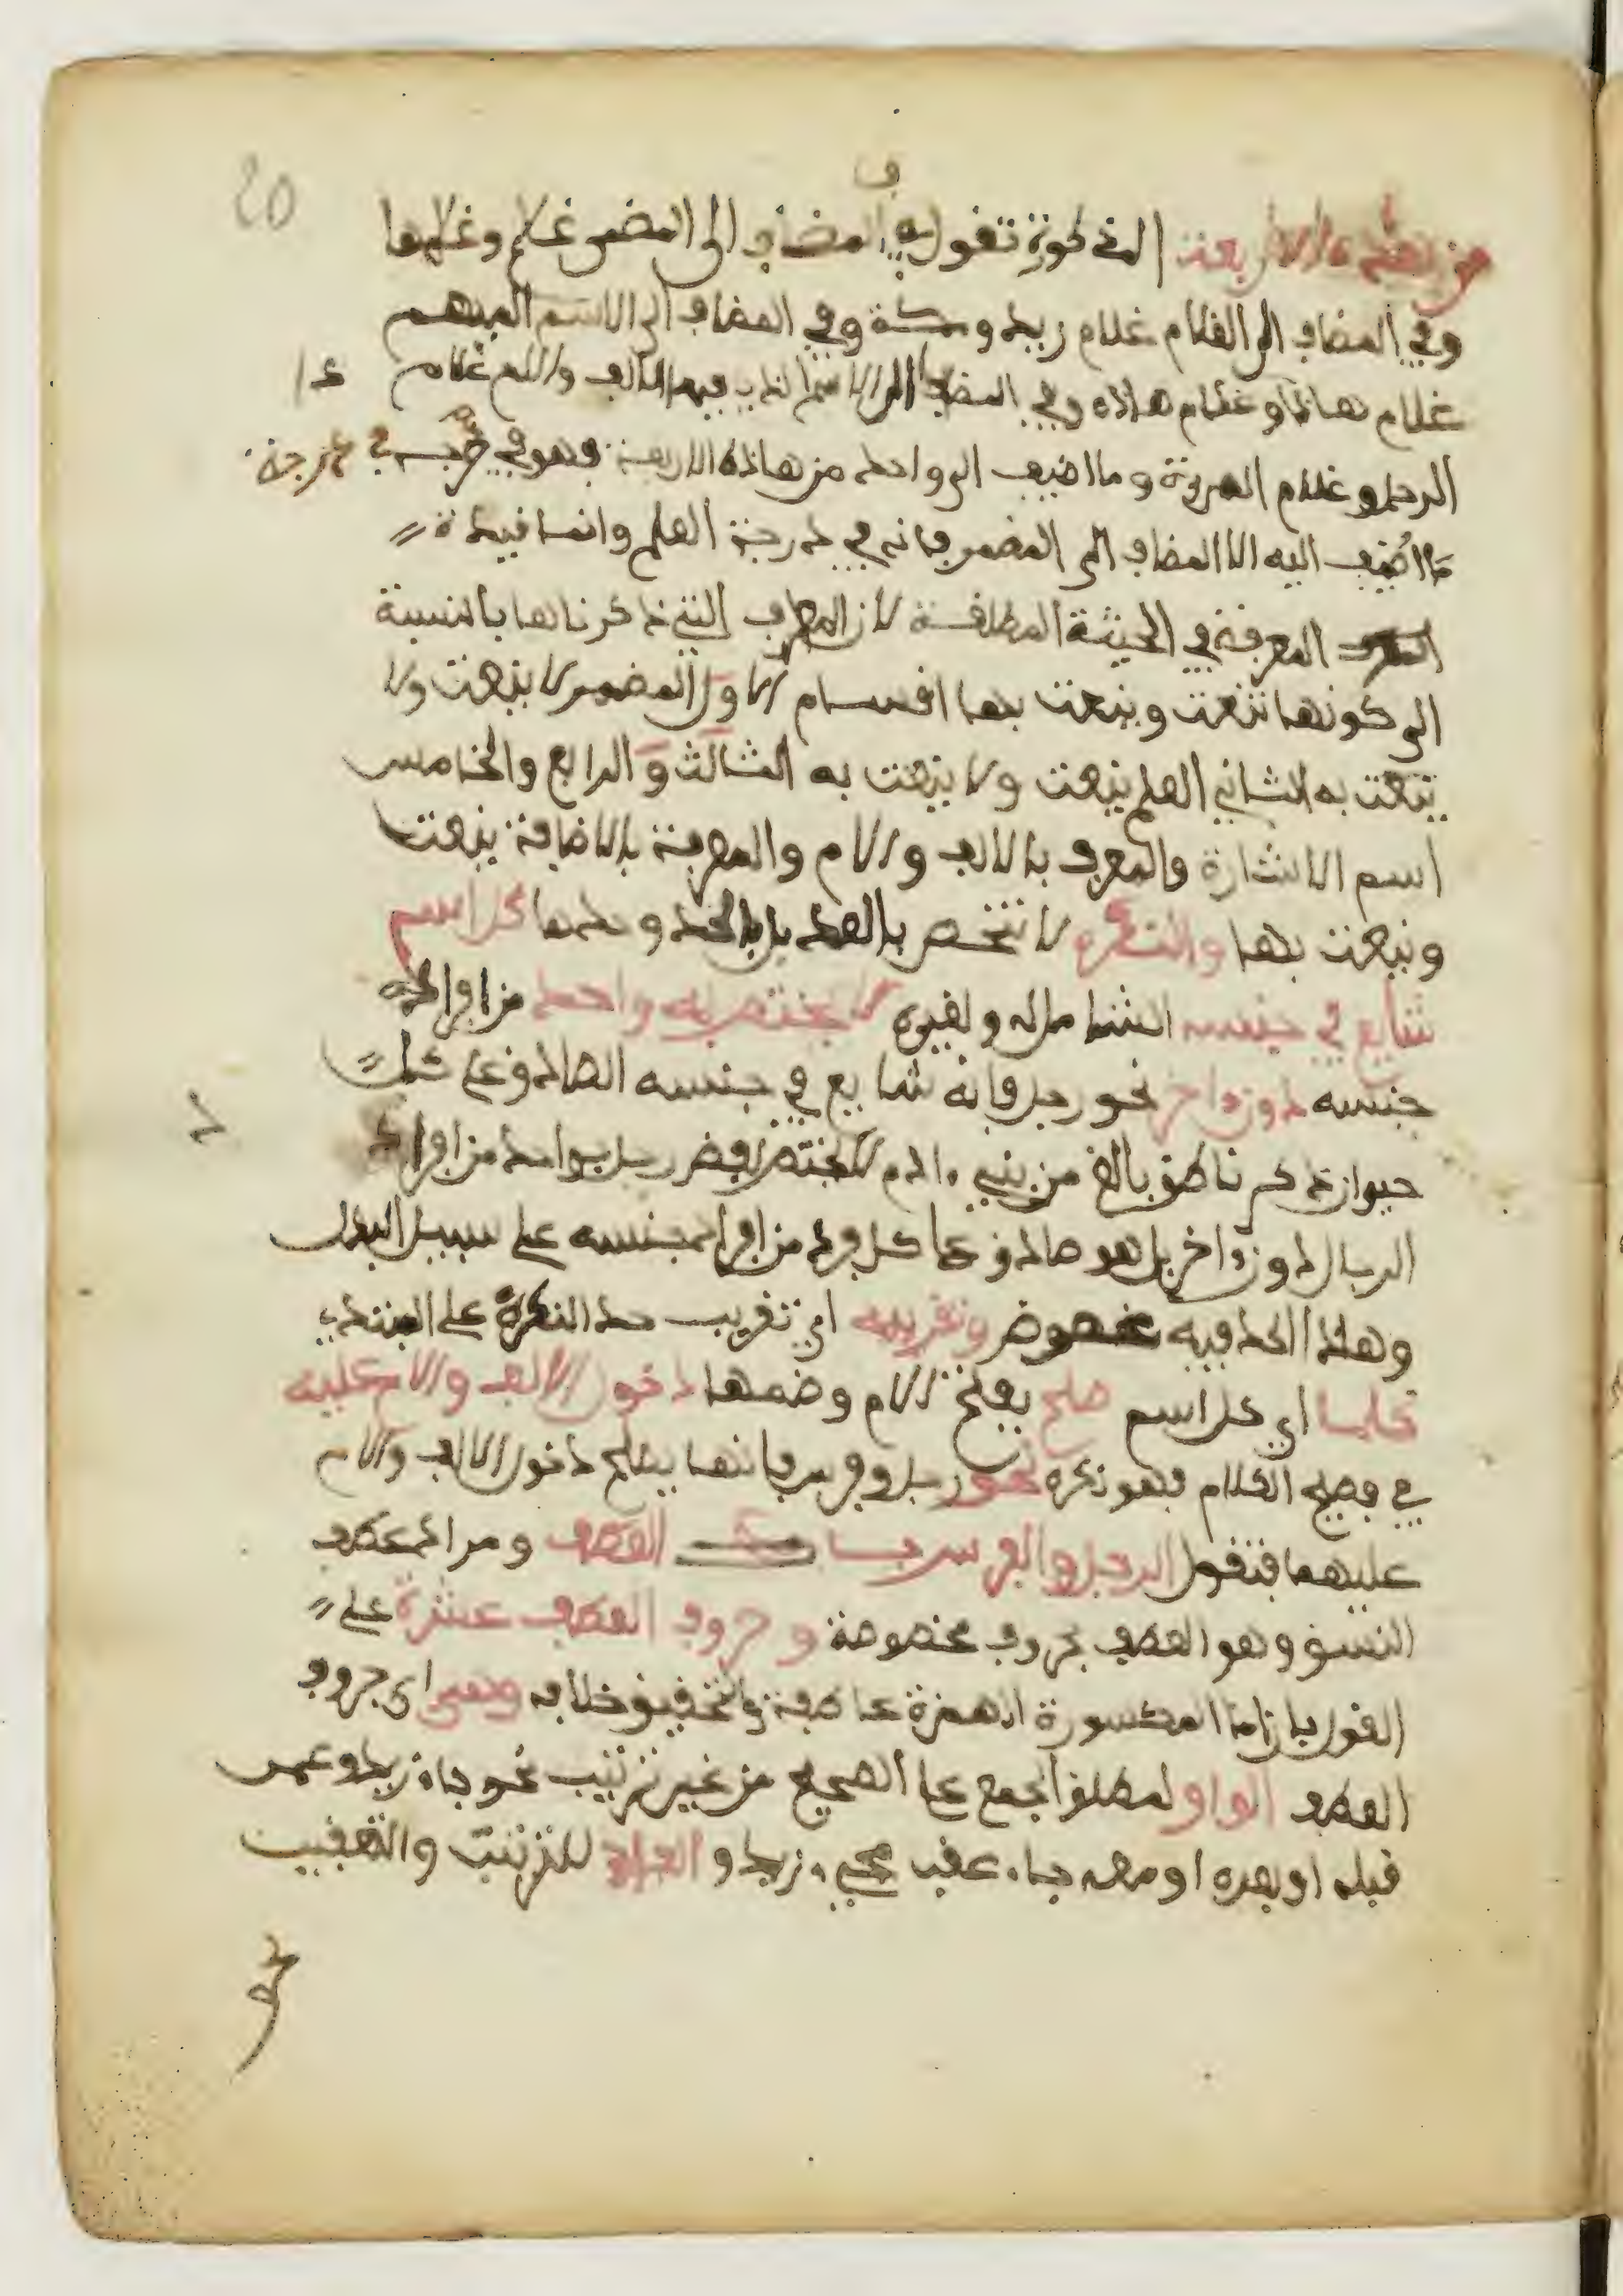 20
من هذه الاربعة المذكورة تقول في المضاف الى المضمر غلامي وغلامها
وفي المضاف الى العلم غلام زيد ومكة وفي المضاف الى الاسم المبهم
غلام هاذا وغلام هاذه وفي المضاف الى الاسم الذي فيه الالف واللام غلام
الرجل وغلام المرءة وما اضيف الى واحد من هاذه الاربعة فهو في درجة
ما اضيف اليه الا المضاف الى المضمر فانه في درجة العلم وانما قيدة
المعرفة في الحيثة المطلقة لان المعارف التي ذكرناها بالنسبة
الى كونها تنعت وينعت بها اقسام الاول المضمر لا ينعت ولا
ينعت به الثاني العلم ينعت ولا ينعت به الثالث والرابع والخامس
اسم الاشارة والمعرف بالالف والام والمعرفة بالاضافة ينعت
وينعت بها والنكرة لا تنحصر بالعد بل بالحد وحدها كل اسم
شايع في جنسه الشامل له ولغيره لا يختص به واحد من افراد
جنسه دون ءاخر نحو رجل فانه شايع في جنسه الصادق على كل
حيوان ذكر ناطق بالغ من بني ءادم لا يختص لفظ رجل بواحد من افراد
الرجال دون ءاخر بل هو صادق على كل فرد من افراد جنسه على سبيل البدل
وهاذا الحد فيه غموض وتقريبه اي تقريب حد النكرة على المبتدي
كلما اي كل اسم صلح بفتح الام وضمها دخول الالف والام عليه
في فصيح الكلام فهو نكرة نحو رجل وفرس فانهما يصلح دخول الالف والام
عليهما فتقول الرجل والفرس باب العطف ومراده عطف
النسق وهو العطف بحروف مخصوصة وحروف العطف عشرة على
القول بان اما المكسورة الهمزة عاطفة والتحقيق خلافه وهي اي حروف
العطف الواو لمطلق الجمع على الصحيح من غير ترتيب نحو جاء زيد وعمر
قبله او بعده او معه جاء عقب مجيء زيد و الفاء للترتيب والتعقيب
نحو